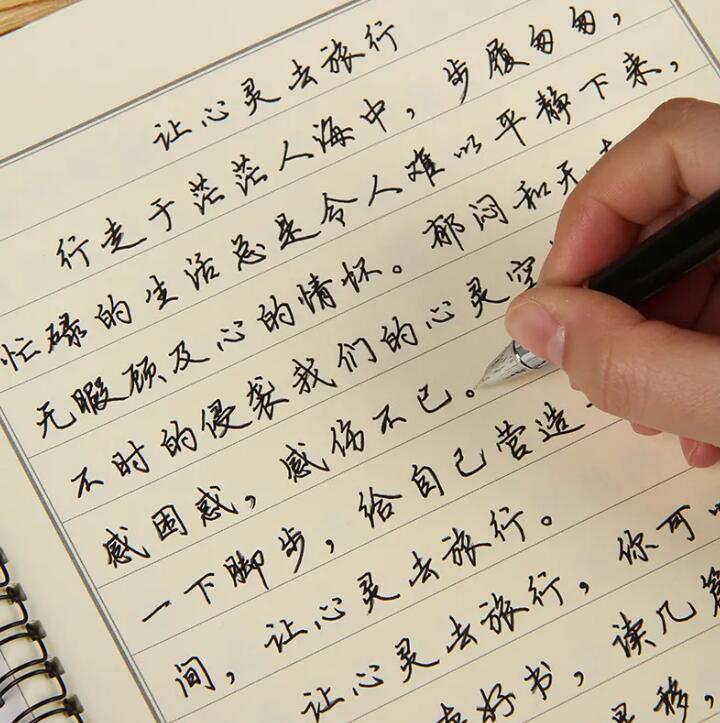 让心灵去旅行
行走于茫茫人海中，步履匆匆，
忙碌的生活总是令人难以平静下来，
无暇顾及心的情怀。郁闷和无
不时的侵袭我们的心灵空
感困惑，感伤不已。
一下脚步，给自己营造一
间，让心灵去旅行。
让心灵去旅行，你可
好书，读几篇